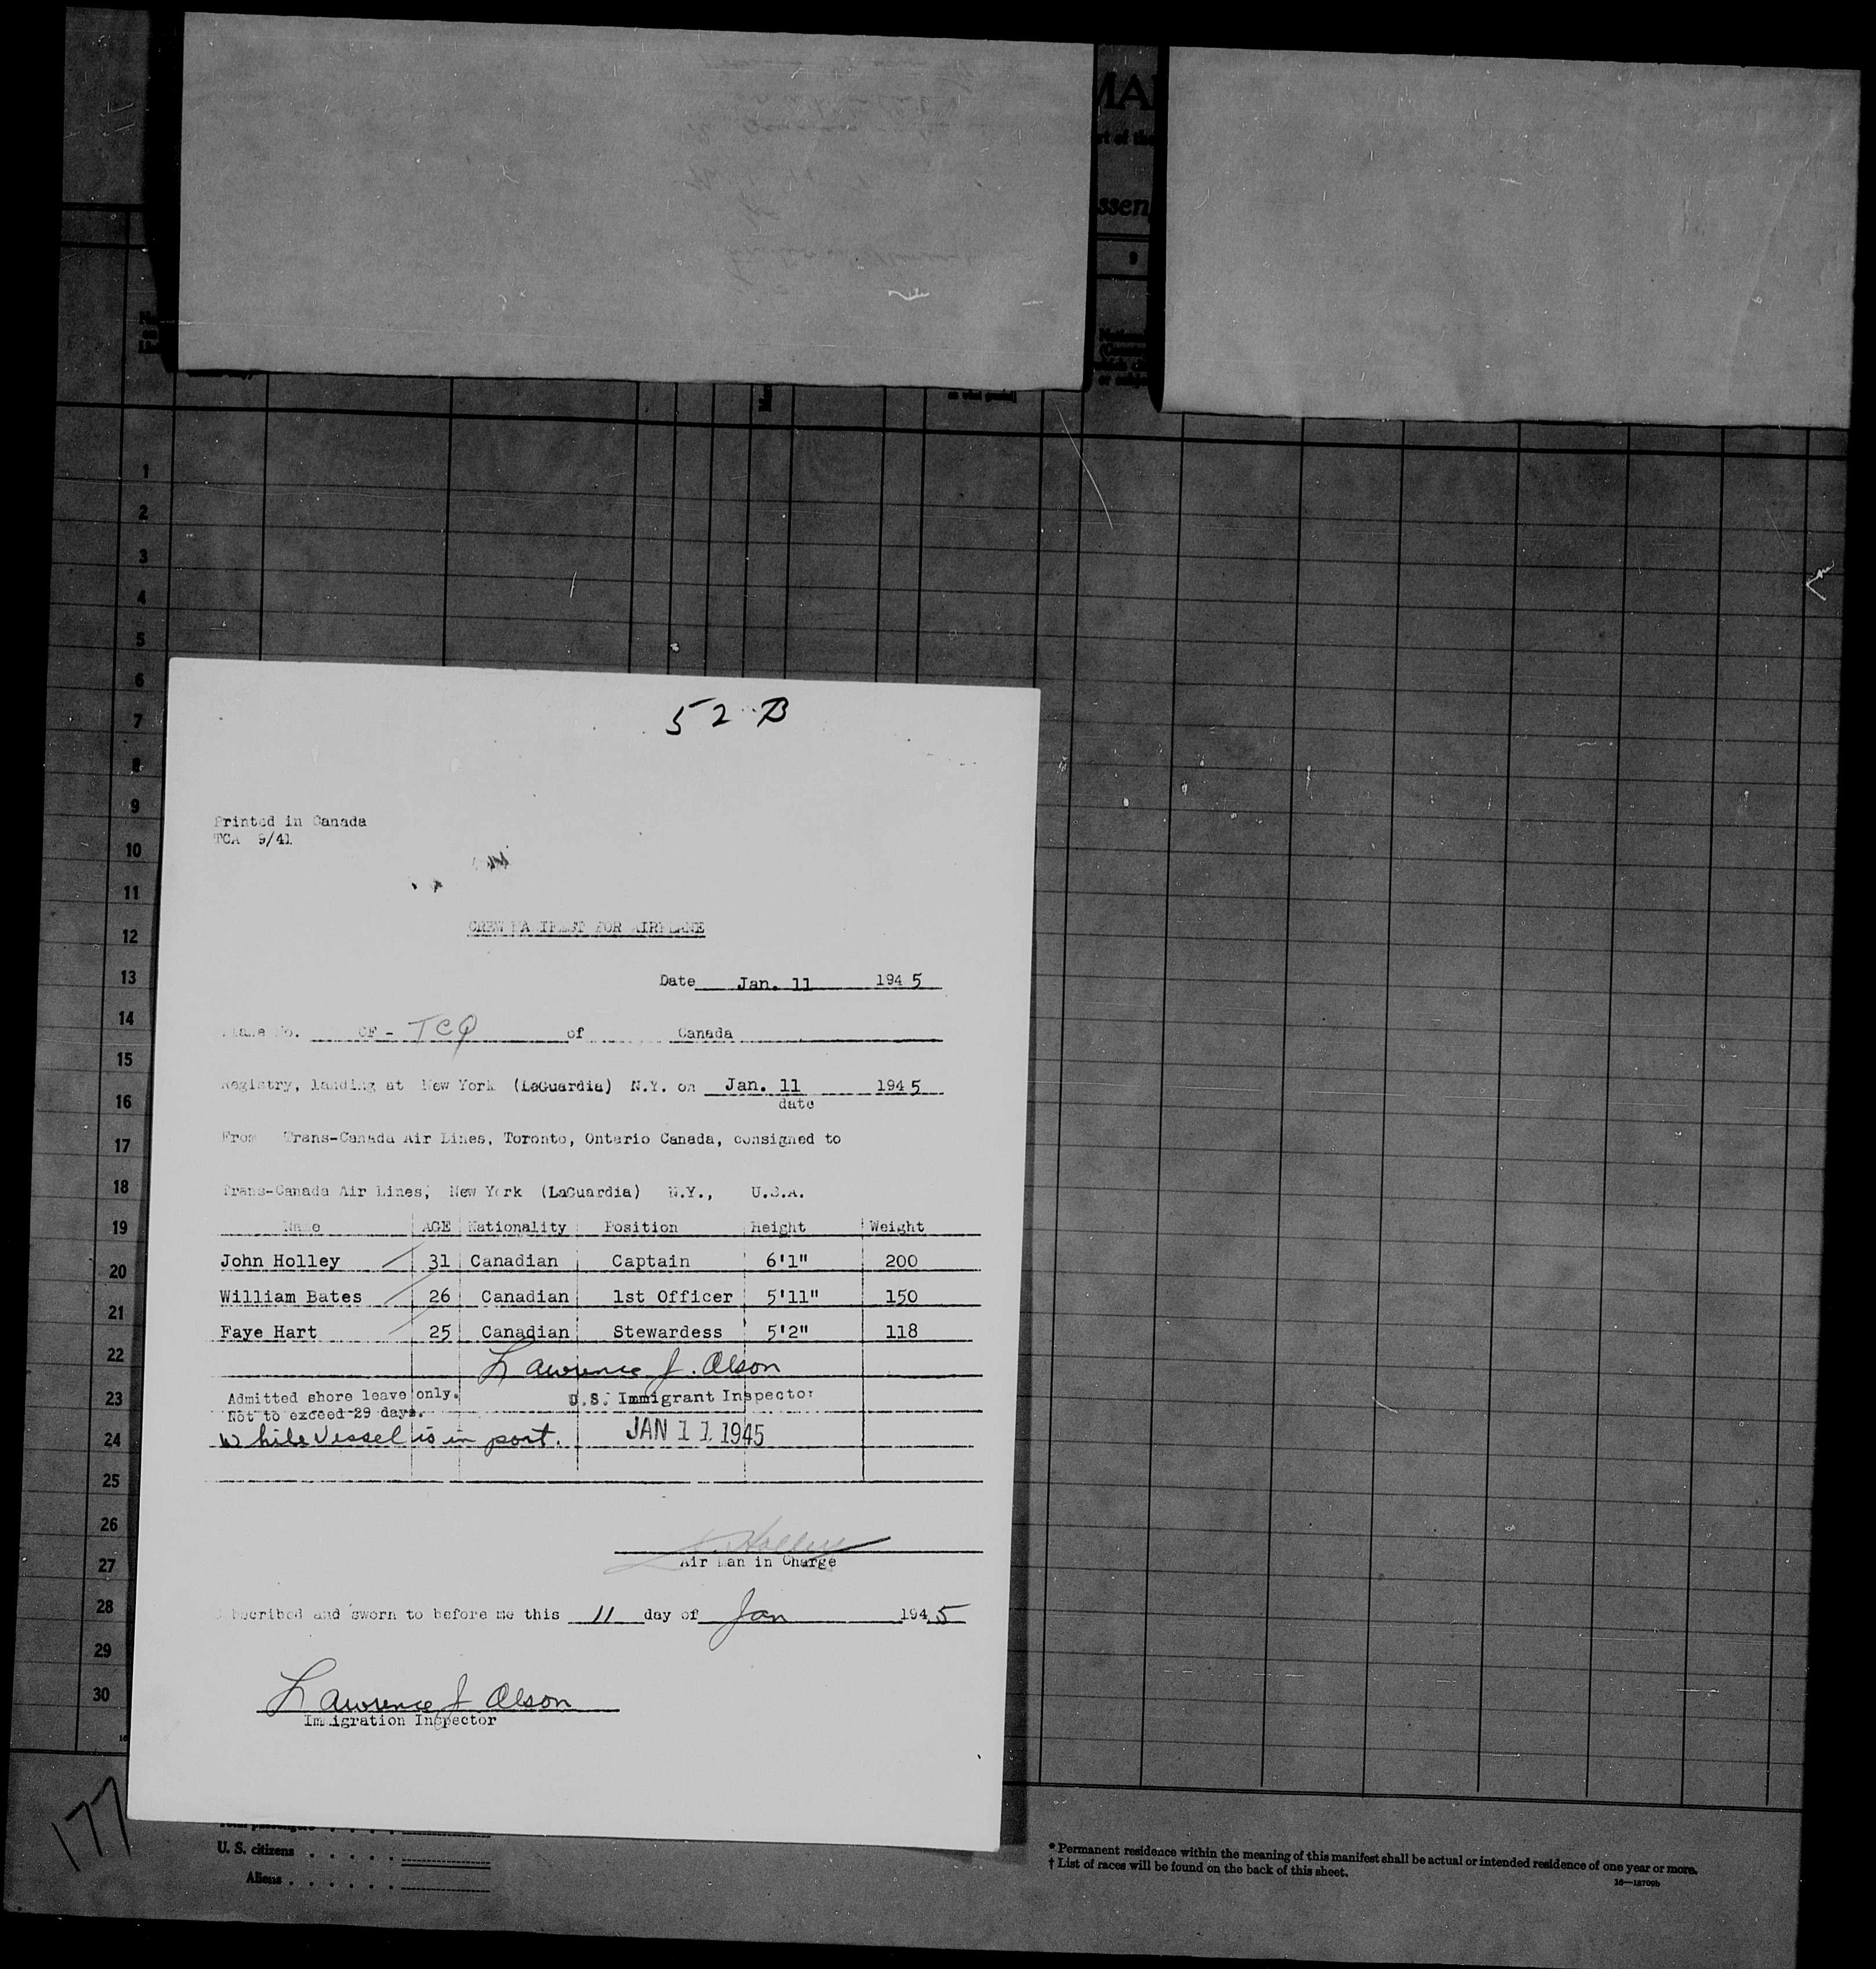 52 B
Printed in Canada
TCA 9/41
CREW MANIFEST FOR AIRPLANE
Date Jan. 11 1945
Plane No. CF - TCQ of Canada
Registry, landing at New York (LaGuardia) N.Y. on Jan. 11 1945
date
From Trans-Canada Air Lines, Toronto, Ontario Canada, consigned to
Trans-Canada Air Lines, New York (LaGuardia) N.Y., U.S.A.
Name AGE Nationality Position Height Weight
John Holley 31 Canadian Captain 6'1" 200
William Bates 26 Canadian 1st Officer 5'11" 150
Faye Hart 25 Canadian Stewardess 5'2" 118
Lawrence J. Olson
Admitted shore leave only. U.S. Immigrant Inspector
Not to exceed 29 days.
While vessel is in port. JAN 11 1945
Holley
Air Man in Charge
Subscribed and sworn to before me this 11 day of Jan 1945
Lawrence J Olson
Immigration Inspector
1
2
3
4
5
6
7
8
9
10
11
12
13
14
15
16
17
18
19
20
21
22
23
24
25
26
27
28
29
30
177
Total passengers
U. S. citizens
Aliens
* Permanent residence within the meaning of this manifest shall be actual or intended residence of one year or more.
† List of races will be found on the back of this sheet.
16—18709b